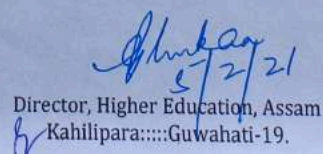 5/2/21
Director, Higher Education, Assam
Kahilipara:::::Guwahati-19.